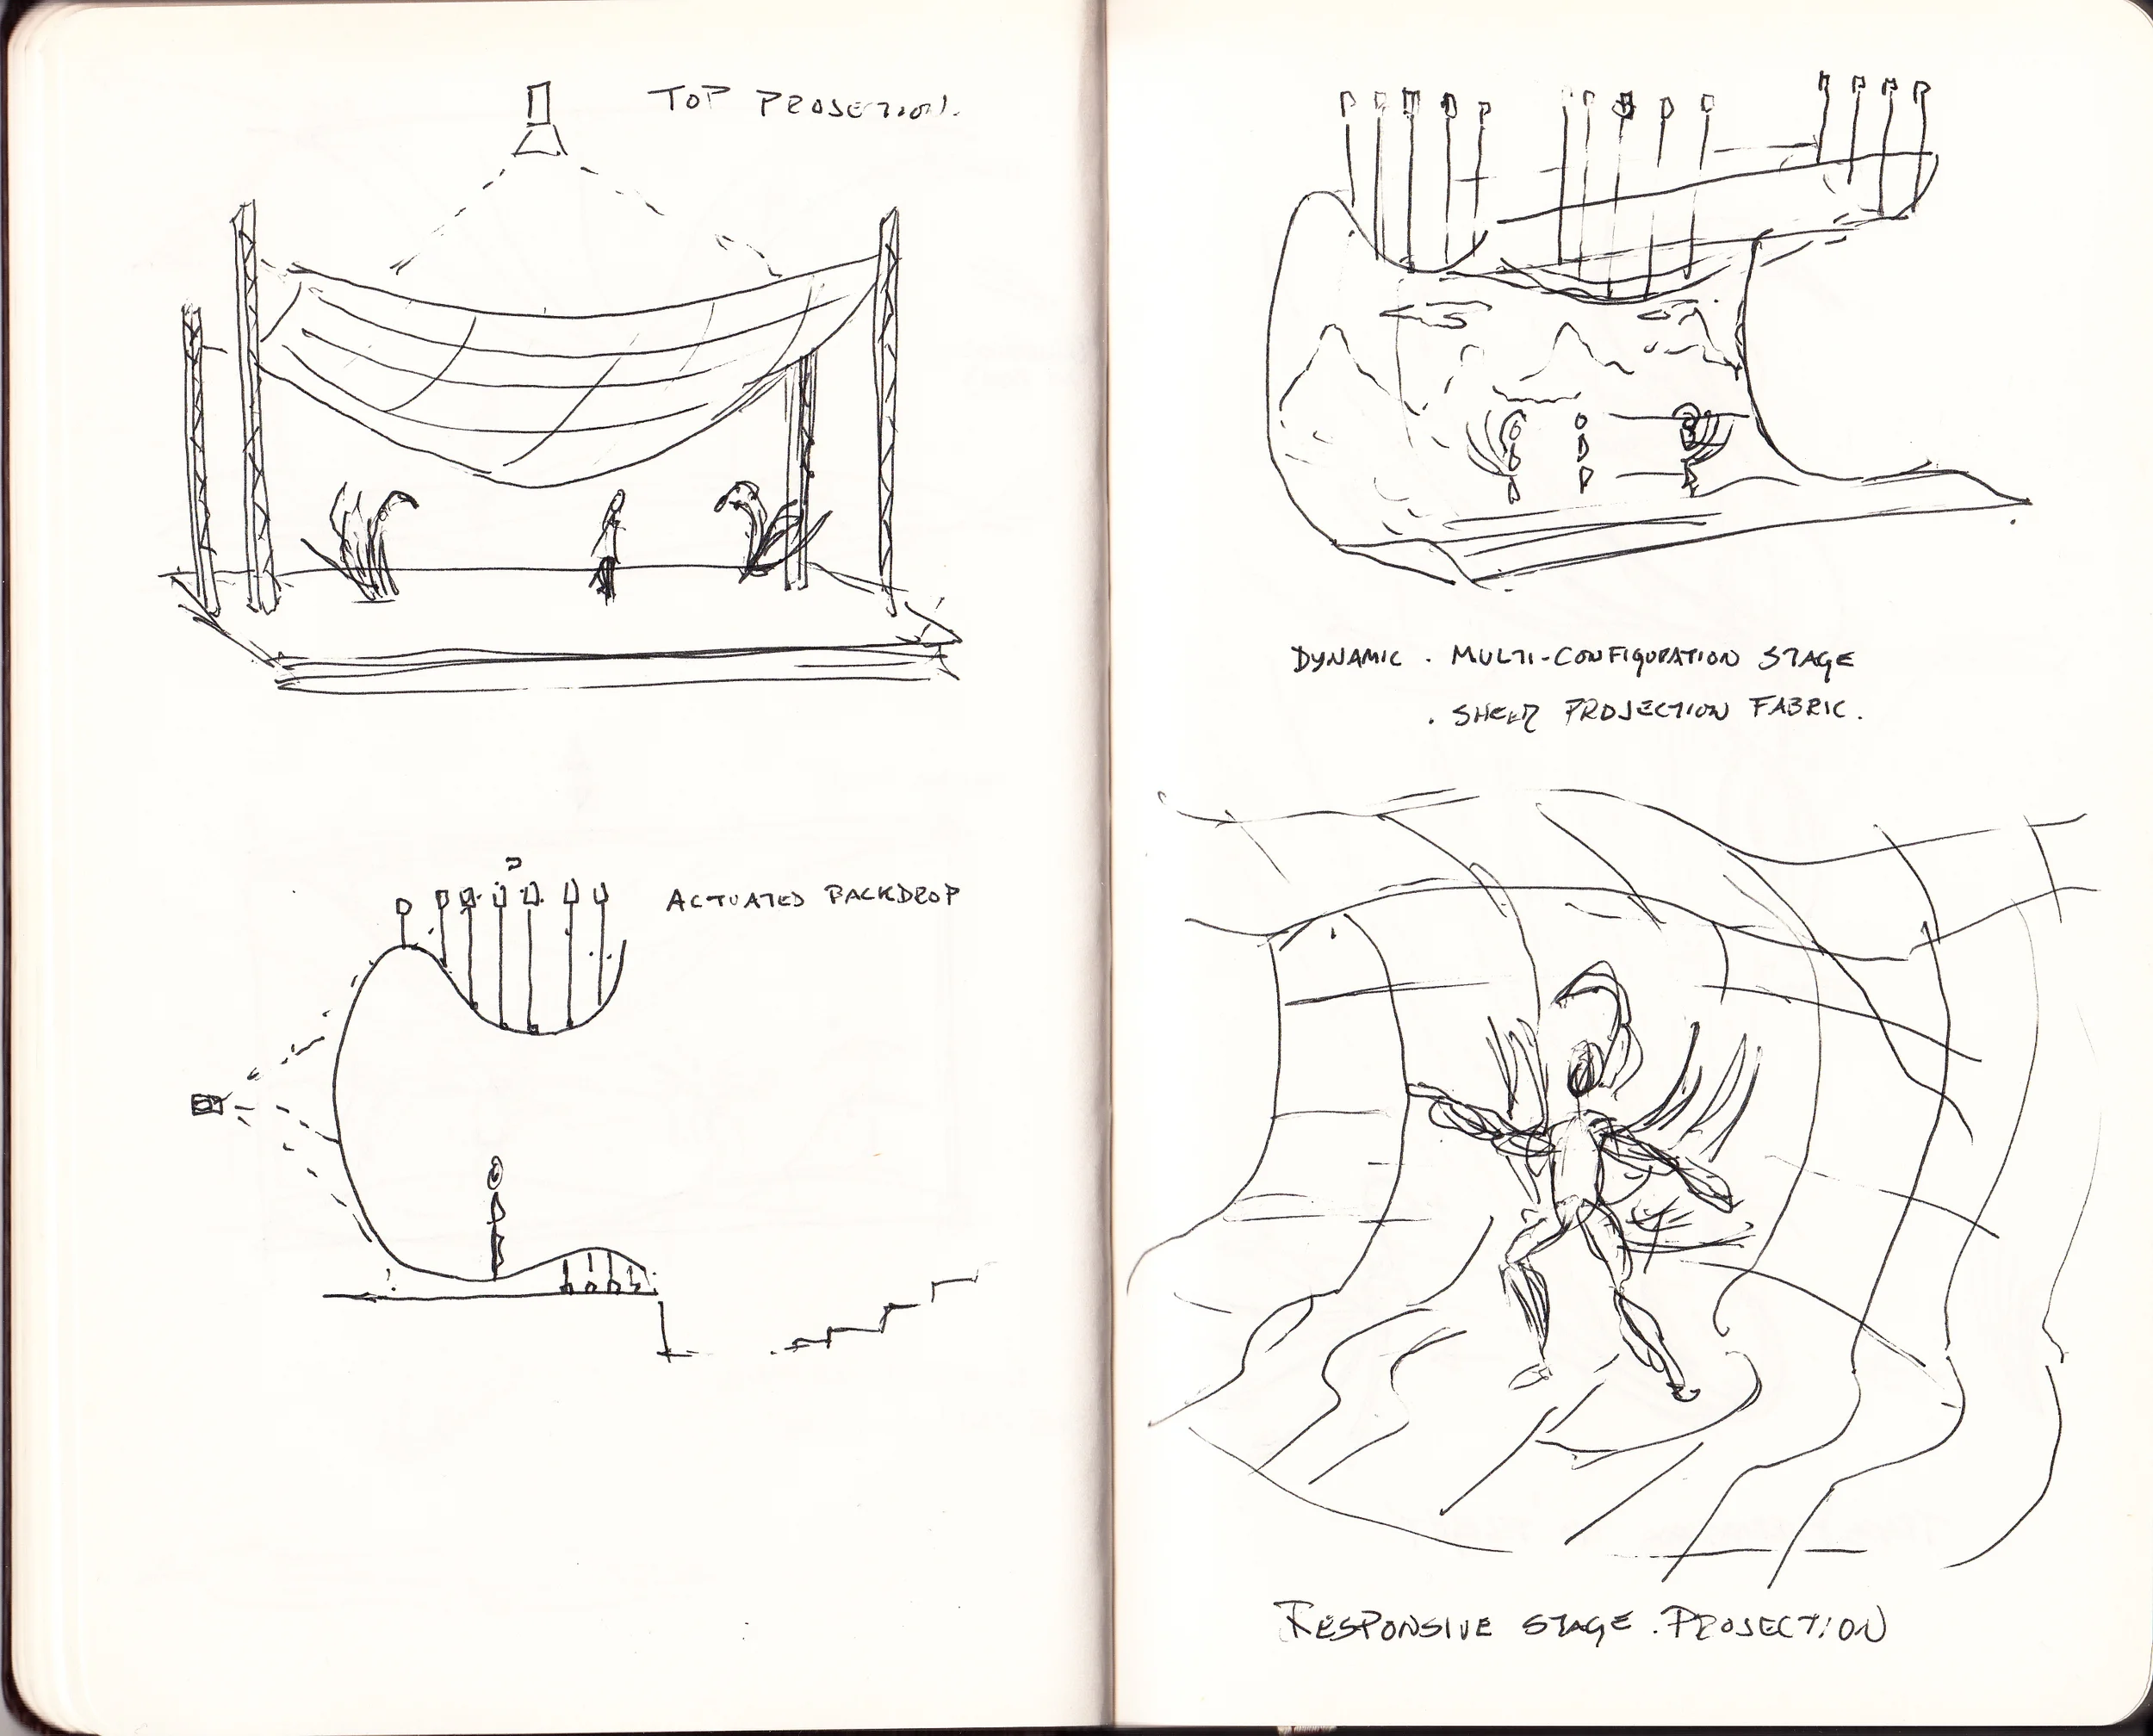 TOP PROJECTION.
ACTUATED BACKDROP
DYNAMIC . MULTI-CONFIGURATION STAGE
. SHEER PROJECTION FABRIC.
RESPONSIVE STAGE . PROJECTION